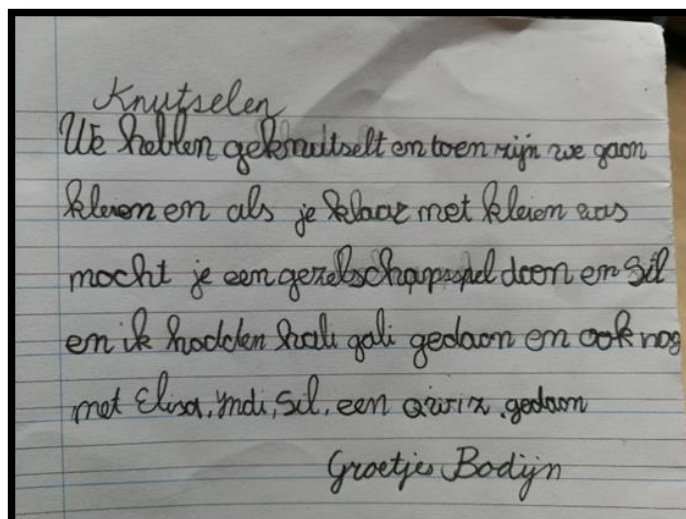 Knutselen
We hebben geknuitselt en toen zijn we gaan
kleien en als je klaar met kleien was
mocht je een gezelschapsspel doen en Sil
en ik hadden hali gali gedaan en ook nog
met Elisa, Yndi, Sil, een qwiz gedaan
Groetjes Bodijn